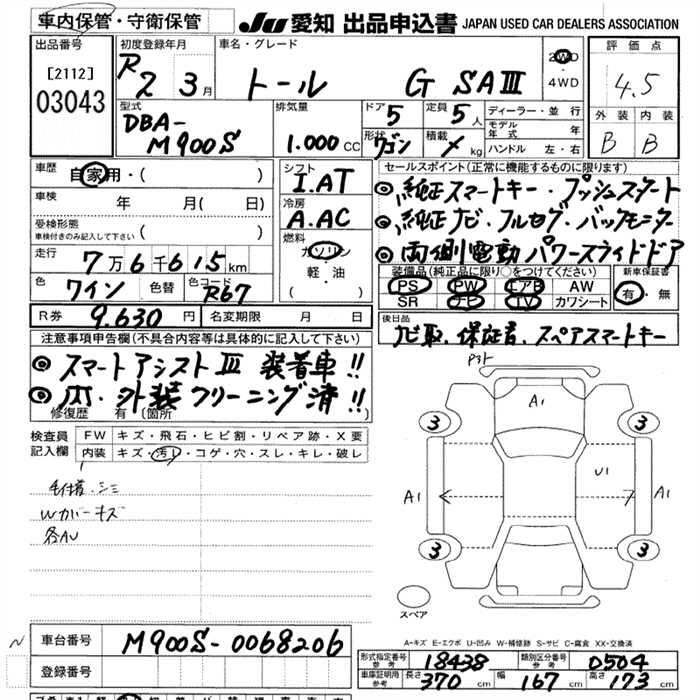 車内保管・守衛保管 JU 愛知 出品申込書 JAPAN USED CAR DEALERS ASSOCIATION
出品番号 初度登録年月 車名・グレード 評価点
[2112] R2 3月 トール G SAⅢ 2WD ・4WD 4.5
03043
型式 排気量 ドア 5 定員 5人 ディーラー・並行 外装 内装
DBA- モデル年式 年
M900S 1.000CC 形状 ワゴン 積載 kg ハンドル 左・右 B B
車歴 自家用・( ) シフト I.AT セールスポイント(正常に機能するものに限ります)
車検 年 月( 日) 冷房 A.AC ◎純正スマートキー・プッシュスタート
受検形態 ◎純正ナビ・フルセグ・バックモニター
車検付きのみ記入して下さい ( ) 燃料 ガソリン ◎両側電動パワースライドドア
走行 7万6千615km ・軽・油 装備品(純正品に限り○をつけてください) 新車保証書
色 ワイン 色替 色コード R67 ( ) PS PW エアB AW 有・無
SR ナビ TV カワシート
R券 9.630円 名変期限 月 日 後日品
注意事項申告欄(不具合内容等は具体的に記入して下さい) ナビ取、保証書、スペアスマートキー
◎スマートアシストⅢ 装着車!!
◎内・外装クリーニング済!!
修復歴 有〔箇所
検査員 FW キズ・飛石・ヒビ割・リペア跡・X要
記入欄 内装 キズ・汚レ・コゲ・穴・スレ・キレ・破レ
Wカバーキズ
各AU
A1
3 3
U1
A1 A1
3 3
スペア
A-キズ E-エクボ U-凹み W-補修跡 S-サビ C-腐食 XX-交換済
N 車台番号 M900S-0068206
形式指定番号 参考 18438 類別区分番号 参考 0504
登録番号 車庫証明用 参考 長さ 370cm 幅 167cm 高さ 173cm